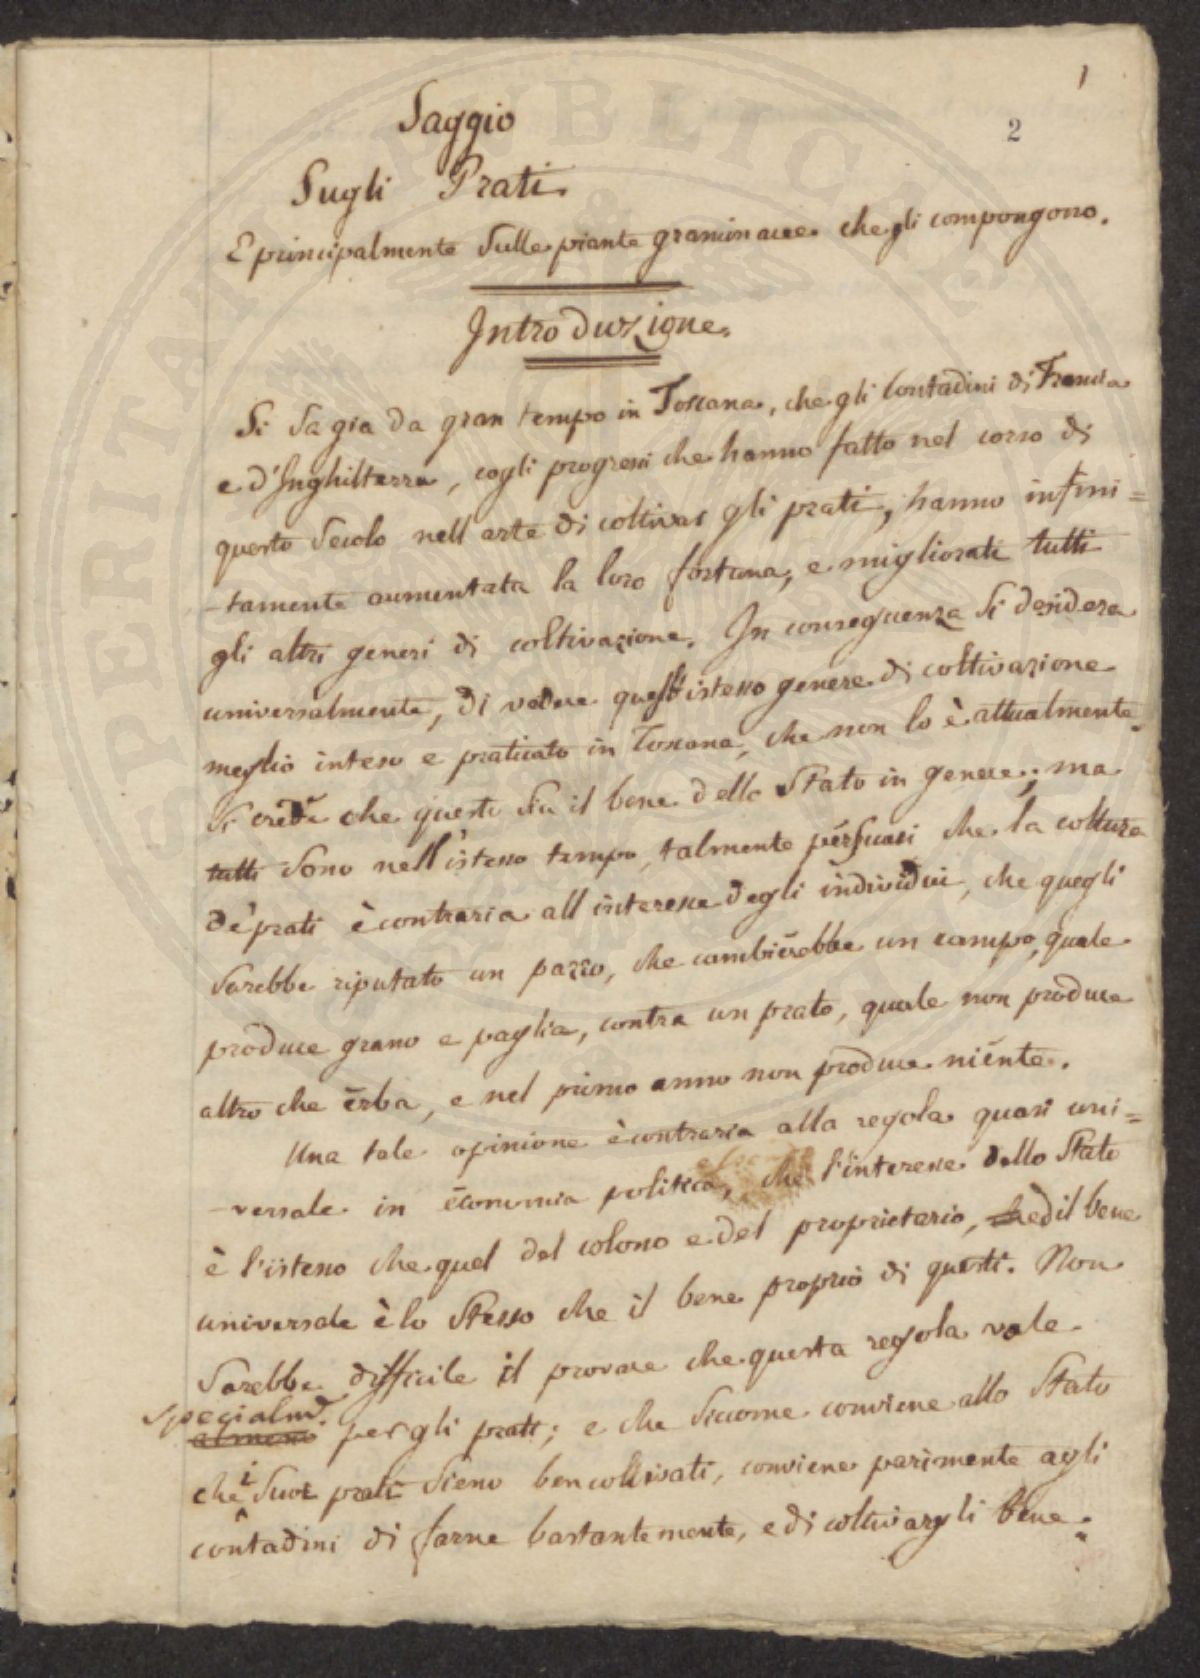 1
2
Saggio
Sugli Prati
E principalmente sulle piante graminacee che gli compongono.
Introduzione.
Si sa gia da gran tempo in Toscana, che gli Contadini di Francia
e d'Inghilterra, cogli progressi che hanno fatto nel corso di
questo secolo nell arte di coltivar gli prati, hanno infini=
-tamente aumentata la loro fortuna, e migliorati tutti
gli altri generi di coltivazione. In conseguenza si desidera
universalmente, di vedere quest'istesso genere di coltivazione
meglio inteso e praticato in Toscana, che non lo è attualmente.
Si crede che questo sia il bene dello Stato in genere; ma
tutti sono nell'istesso tempo, talmente persuasi che la coltura
de' prati è contraria all interesse degli individui, che quegli
sarebbe riputato un pazzo, che cambierebbe un campo, quale
produce grano e paglia, contra un prato, quale non produce
altro che erba, e nel primo anno non produce niente.
Una tale opinione è contraria alla regola quasi uni=
-versale in economia politica, che l'interesse dello Stato
è l'istesso che quel del colono e del proprietario, ed il bene
universale è lo stesso che il bene proprio di questi. Non
sarebbe difficile il provare che questa regola vale
specialmte.
almeno per gli prati; e che siccome conviene allo Stato
che i suoi prati sieno ben coltivati, conviene parimente agli
contadini di farne bastantemente, e di coltivargli bene.
SPERITATI PUBLICAE